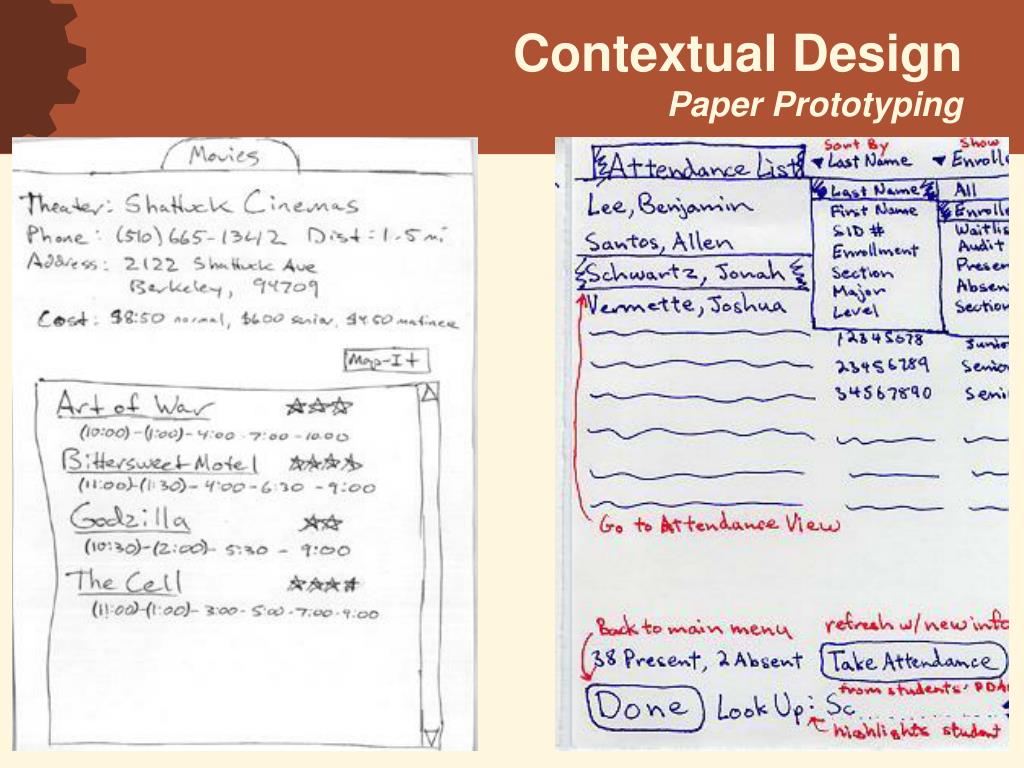 Contextual Design
Paper Prototyping
Movies
Theater: Shattuck Cinemas
Phone: (510) 665-1342 Dist: 1.5 mi
Address: 2122 Shattuck Ave
Berkeley, 94709
Cost: $8:50 normal, $600 senior, $450 matinee
Map-It
Art of War
(10:00)-(1:00)-4:00-7:00-10:00
Bittersweet Motel
(11:00)-(1:30)-4:00-6:30-9:00
Godzilla
(10:30)-(2:00)-5:30-9:00
The Cell
(11:00)-(1:00)-3:00-5:00-7:00-9:00
Sort By Show
Attendance List Last Name Enrolle
Last Name All
Lee, Benjamin First Name Enrolle
SID # Waitlis
Santos, Allen Enrollment Audit
Schwartz, Jonah Section Presen
Major Absen
Vermette, Joshua Level Section
12345678 Junio
23456789 Senio
34567890 Seni
Go to Attendance View
Back to main menu refresh w/new info
38 Present, 2 Absent Take Attendance
from students' PDA
Done Look Up: Sc
highlights student